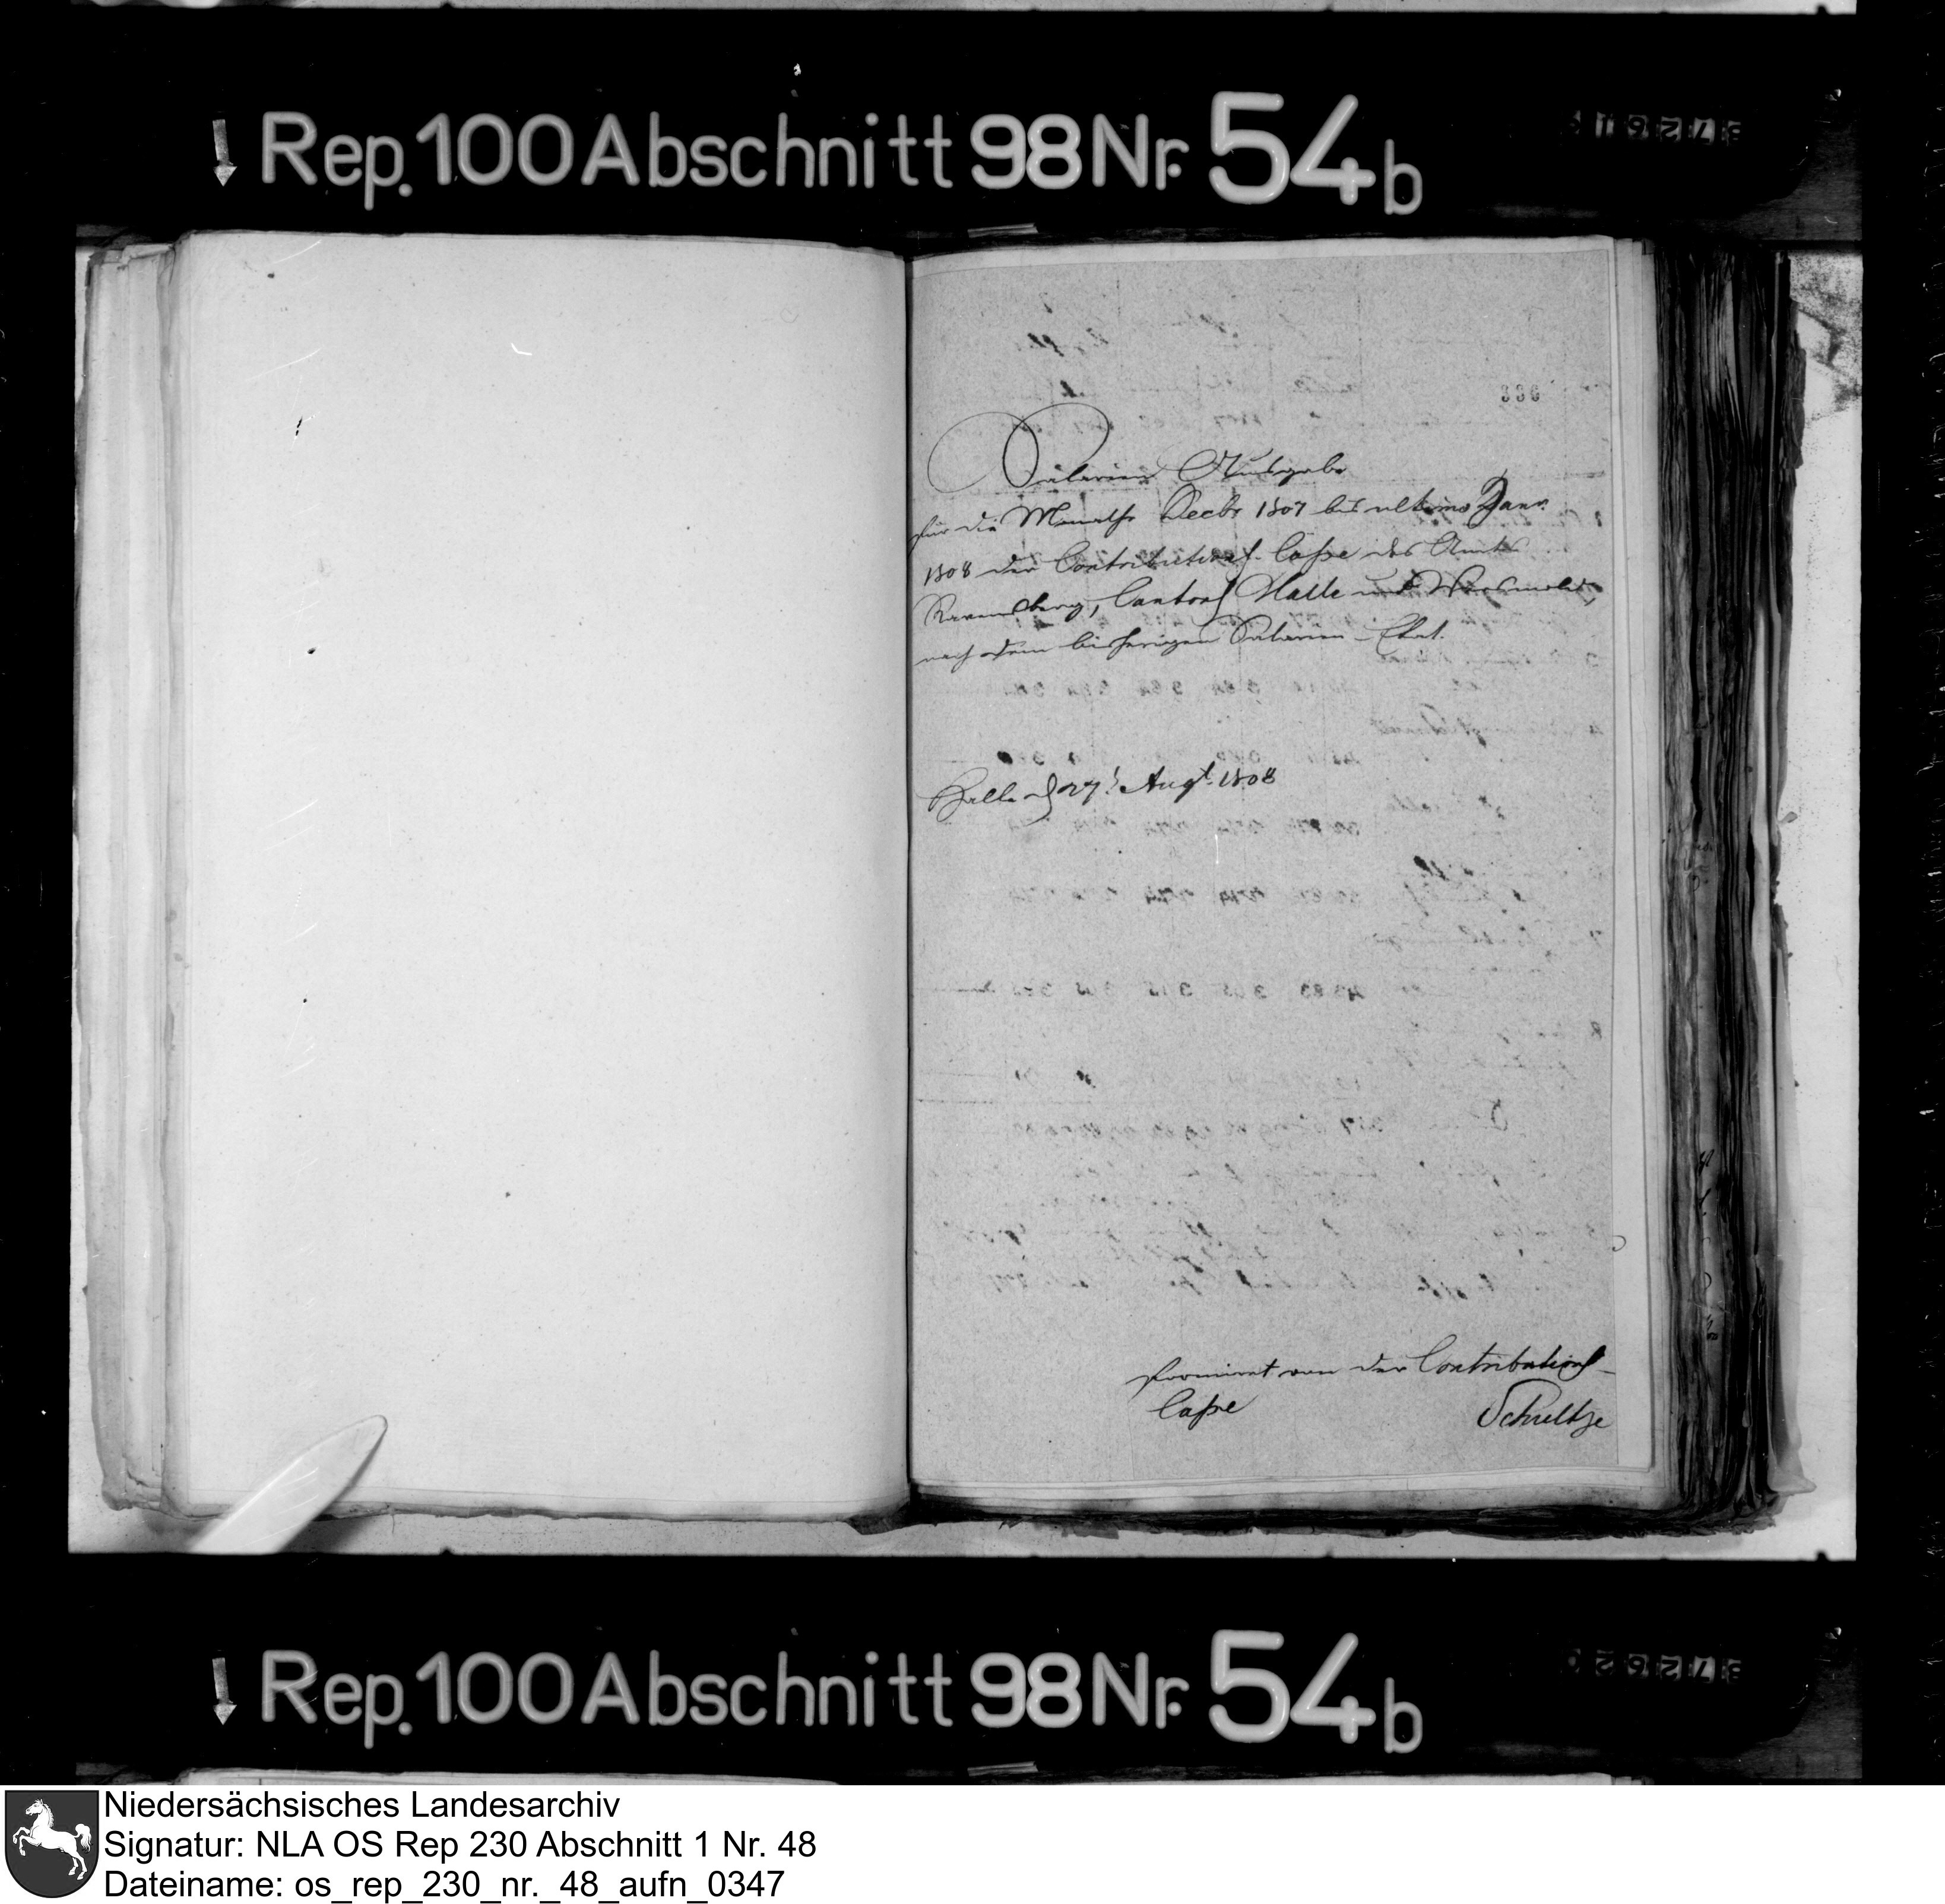 Rep. 100 Abschnitt 98 Nr. 54b
336
Salarien Ausgabe
für die Monathe Decbr 1807 bis ultimo Janr.
1808 der Contributions-Casse des Amts
Ravensberg, Cantons Halle und Versmold,
nach dem bisherigen Salarien-Etat.
Halle d 27t. Augt. 1808
formirt von der Contributions-
Casse
Schultze
Rep. 100 Abschnitt 98 Nr. 54b
Niedersächsisches Landesarchiv
Signatur: NLA OS Rep 230 Abschnitt 1 Nr. 48
Dateiname: os_rep_230_nr._48_aufn_0347